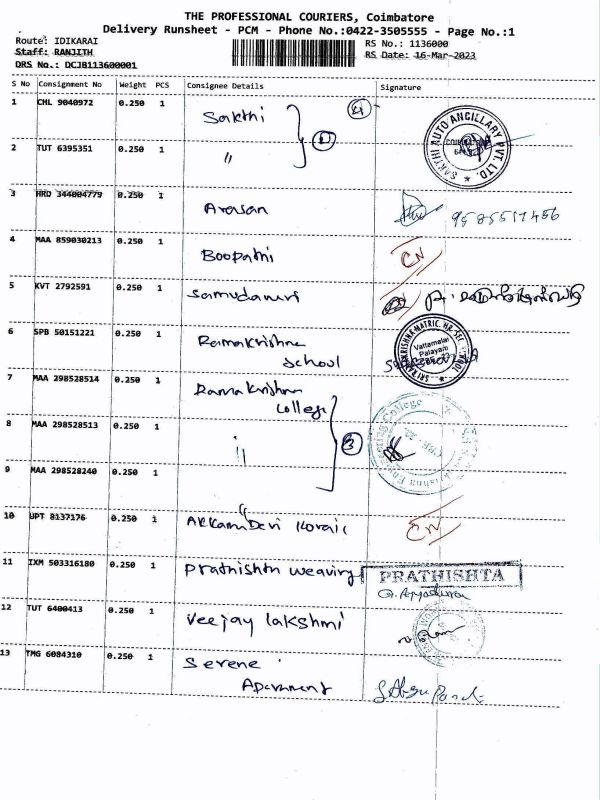 THE PROFESSIONAL COURIERS, Coimbatore
Delivery Runsheet - PCM - Phone No.:0422-3505555 - Page No.:1
Route: IDIKARAI
RS No.: 1136000
Staff: RANJITH
RS Date: 16-Mar-2023
DRS No.: DCJB113600001
S No Consignment No Weight PCS Consignee Details Signature
1 CHL 9040972 0.250 1 Sakthi
SAKTHI AUTO ANCILLARY PVT. LTD.
2 TUT 6395351 0.250 1 "
3 HRD 344004779 0.250 1 Arasan 9585517456
4 MAA 859030213 0.250 1 Boopathi CN
5 KVT 2792591 0.250 1
6 SPB 50151221 0.250 1 Ramakrishna
School
Vattamalai
Palayam
7 MAA 298528514 0.250 1 Ramakrishna
College
8 MAA 298528513 0.250 1 "
3
9 MAA 298528240 0.250 1 "
10 UPT 8137176 0.250 1 CN
11 IXM 503316180 0.250 1 Prathishta weaving PRATHISHTA
12 TUT 6400413 0.250 1 Veejay lakshmi
13 TMG 6084310 0.250 1 Serene
Apartment